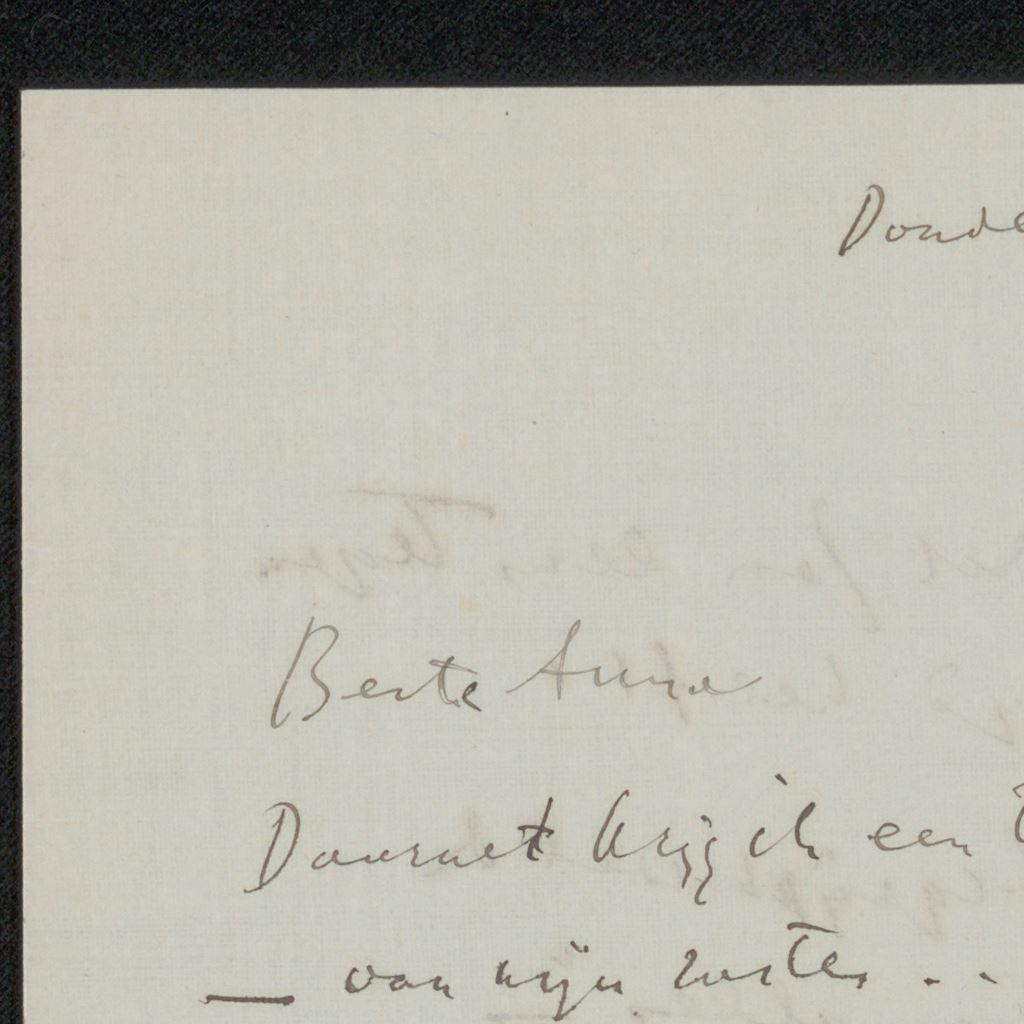 Donde
Beste Anna
Daarnet krijg ik een
van mijn zuster . .